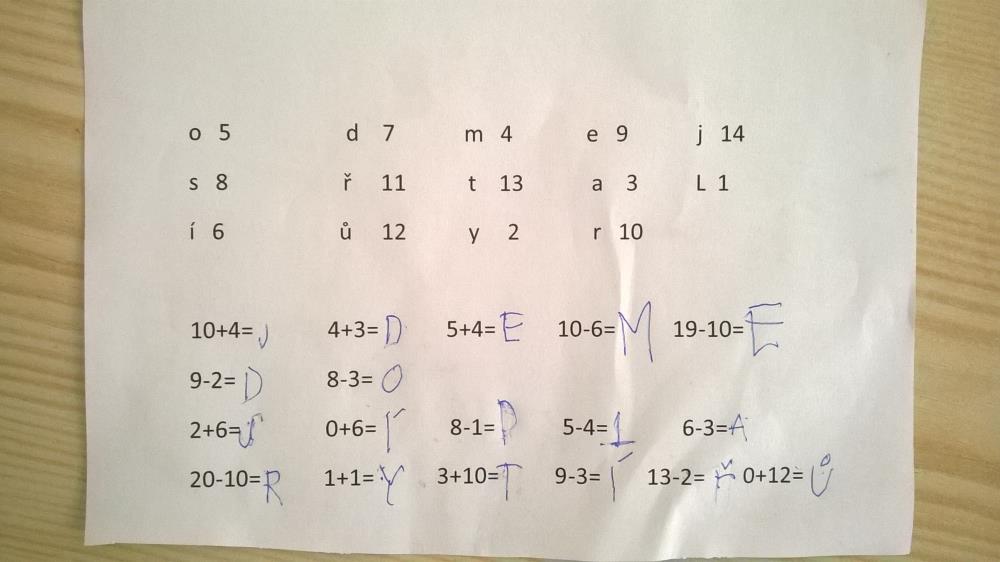 o 5 d 7 m 4 e 9 j 14
s 8 ř 11 t 13 a 3 L 1
í 6 ů 12 y 2 r 10
10+4= J 4+3= D 5+4= E 10-6= M 19-10= E
9-2= D 8-3= O
2+6= S 0+6= Í 8-1= D 5-4= L 6-3= A
20-10= R 1+1= Y 3+10= T 9-3= Í 13-2= Ř 0+12= Ů